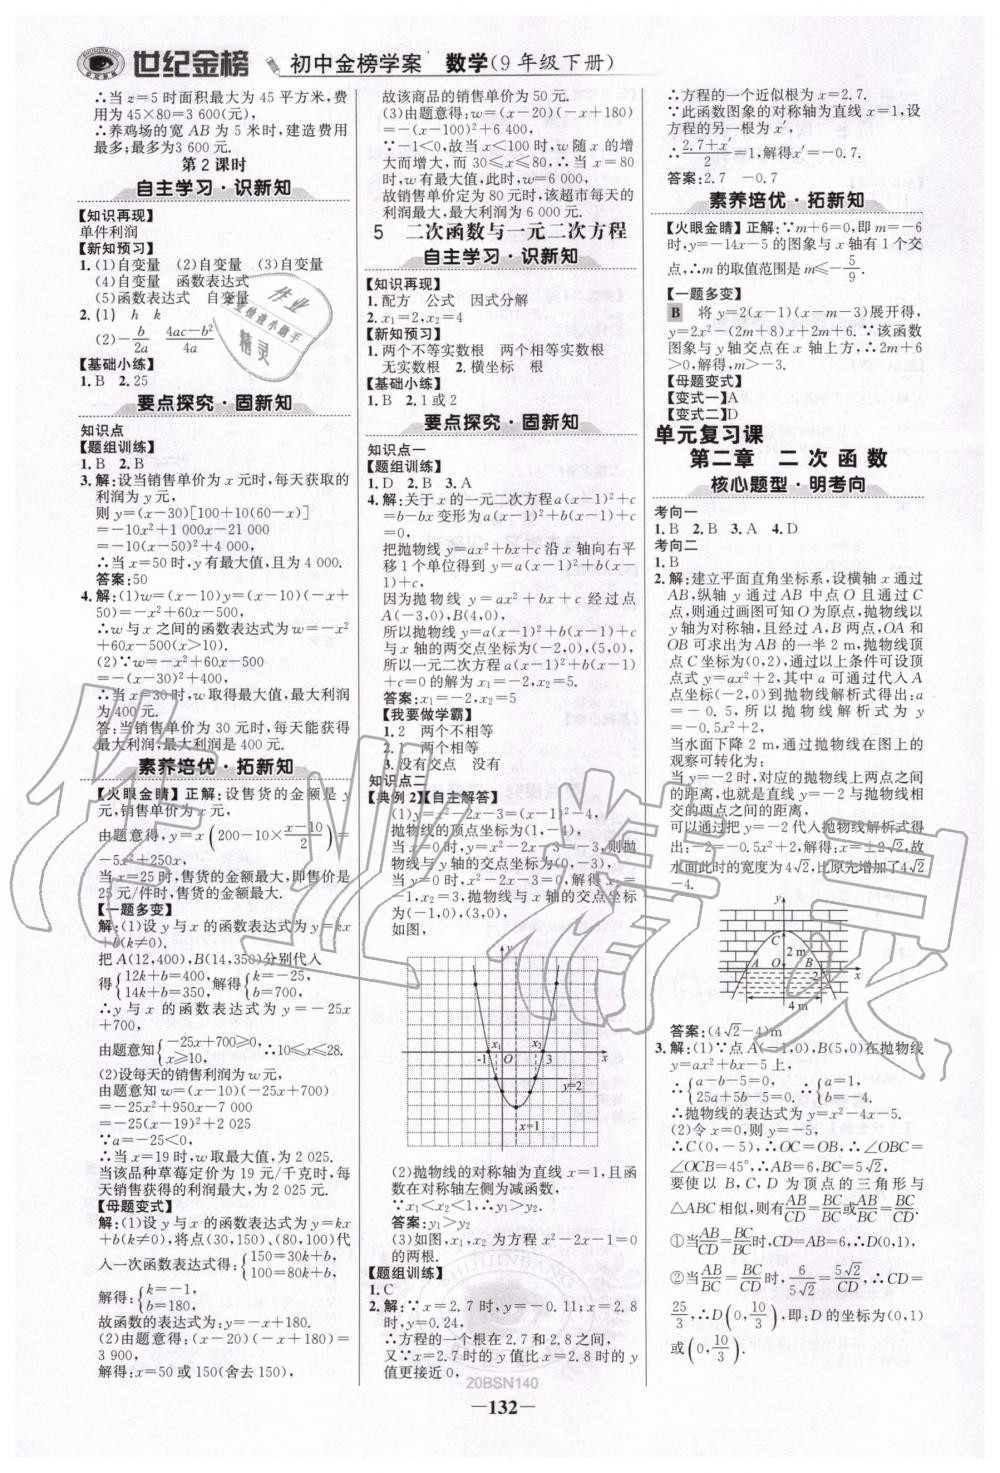 世纪金榜 初中金榜学案 数学(9年级下册)
∴当z=5时面积最大为45平方米,费
用为45×80=3 600(元),
∴养鸡场的宽AB为5米时,建造费用
最多;最多为3 600元.
第2课时
自主学习·识新知
【知识再现】
单件利润
【新知预习】
1.(1)自变量 (2)自变量 (3)自变量
(4)自变量 函数表达式
(5)函数表达式 自变量
2.(1) h k
(2)-b/2a (4ac-b²)/4a
【基础小练】
1.B 2.25
要点探究·固新知
知识点
【题组训练】
1.B 2.B
3.解:设当销售单价为x元时,每天获取的
利润为y元,
则y=(x-30)[100+10(60-x)]
=-10x²+1 000x-21 000
=-10(x-50)²+4 000,
∴当x=50时,y有最大值,且为4 000.
答案:50
4.解:(1)w=(x-10)y=(x-10)(-x+
50)=-x²+60x-500,
∴w与x之间的函数表达式为w=-x²
+60x-500(x>10).
(2)∵w=-x²+60x-500
=-(x-30)²+400,
∴当x=30时,w取得最大值,最大利润
为400元.
答:当销售单价为30元时,每天能获得
最大利润,最大利润是400元.
素养培优·拓新知
【火眼金睛】正解:设售货的金额是y
元,销售单价为x元,
由题意得,y=x(200-10×(x-10)/2)=
-5x²+250x,
当x=25时,售货的金额最大,即售价是
25元/件时,售货的金额最大.
【一题多变】
解:(1)设y与x的函数表达式为y=kx
+b(k≠0).
把A(12,400),B(14,350)分别代入
得{12k+b=400,14k+b=350,解得{k=-25,b=700,
∴y与x的函数表达式为y=-25x
+700,
由题意知{-25x+700≥0,x≥10,∴10≤x≤28.
(2)设每天的销售利润为w元,
由题意知w=(x-10)(-25x+700)
=-25x²+950x-7 000
=-25(x-19)²+2 025
∵a=-25<0,
∴当x=19时,w取最大值,为2 025.
当该品种草莓定价为19元/千克时,每
天销售获得的利润最大,为2 025元.
【母题变式】
解:(1)设y与x的函数表达式为y=kx
+b(k≠0),将点(30,150)、(80,100)代
入一次函数表达式得:{150=30k+b,100=80k+b,
解得:{k=-1,b=180,
故函数的表达式为:y=-x+180.
(2)由题意得:(x-20)(-x+180)=
3 900,
解得:x=50或150(舍去150),
故该商品的销售单价为50元.
(3)由题意得:w=(x-20)(-x+180)
=-(x-100)²+6 400,
∵-1<0,故当x<100时,w随x的增
大而增大,而30≤x≤80,∴当x=80
时,w有最大值,此时,w=6 000,
故销售单价定为80元时,该超市每天的
利润最大,最大利润为6 000元.
5 二次函数与一元二次方程
自主学习·识新知
【知识再现】
1.配方 公式 因式分解
2.x₁=2,x₂=4
【新知预习】
1.两个不等实数根 两个相等实数根
无实数根 2.横坐标 根
【基础小练】
1.B 2.1或2
要点探究·固新知
知识点一
【题组训练】
1.D 2.B 3.A
4.解:关于x的一元二次方程a(x-1)²+c
=b-bx变形为a(x-1)²+b(x-1)+c
=0,
把抛物线y=ax²+bx+c沿x轴向右平
移1个单位得到y=a(x-1)²+b(x-
1)+c,
因为抛物线y=ax²+bx+c经过点
A(-3,0),B(4,0),
所以抛物线y=a(x-1)²+b(x-1)+c
与x轴的两交点坐标为(-2,0),(5,0),
所以一元二次方程a(x-1)²+b(x-1)
+c=0的解为x₁=-2,x₂=5.
答案:x₁=-2,x₂=5
【我要做学霸】
1.2 两个不相等
2.1 两个相等
3.没有交点 没有
知识点二
【典例2】【自主解答】
(1)y=x²-2x-3=(x-1)²-4,
抛物线的顶点坐标为(1,-4),
当x=0时,y=x²-2x-3=-3,则抛
物线与y轴的交点坐标为(0,-3),
当y=0时,x²-2x-3=0,解得x₁=
-1,x₂=3,抛物线与x轴的交点坐标
为(-1,0),(3,0),
如图,
y
x₁ x₂
-1 O 3 x
y=2
x=1
(2)抛物线的对称轴为直线x=1,且函
数在对称轴左侧为减函数,
∵x₁<x₂<1,∴y₁>y₂
答案:y₁>y₂
(3)如图,x₁,x₂为方程x²-2x-1=0
的两根.
【题组训练】
1.C
2.解:∵x=2.7时,y=-0.11;x=2.8
时,y=0.24,
∴方程的一个根在2.7和2.8之间,
又∵x=2.7时的y值比x=2.8时的y
值更接近0,
∴方程的一个近似根为x=2.7.
∵此函数图象的对称轴为直线x=1,设
方程的另一根为x′,
∴(2.7+x′)/2=1,解得x′=-0.7.
答案:2.7 -0.7
素养培优·拓新知
【火眼金睛】正解:∵m+6=0,即m=-6
时,y=-14x-5的图象与x轴有1个交
点,∴m的取值范围是m≤-5/9.
【一题多变】
B 将y=2(x-1)(x-m-3)展开得,
y=2x²-(2m+8)x+2m+6.∵该函数
图象与y轴交点在x轴上方,∴2m+6
>0,解得,m>-3.
【母题变式】
【变式一】A
【变式二】D
单元复习课
第二章 二次函数
核心题型·明考向
考向一
1.B 2.B 3.A 4.D
考向二
1.B
2.解:建立平面直角坐标系,设横轴x通过
AB,纵轴y通过AB中点O且通过C
点,则通过画图可知O为原点,抛物线以
y轴为对称轴,且经过A,B两点,OA和
OB可求出为AB的一半2 m,抛物线顶
点C坐标为(0,2),通过以上条件可设顶
点式y=ax²+2,其中a可通过代入A
点坐标(-2,0)到抛物线解析式得出:a=
-0.5,所以抛物线解析式为y=
-0.5x²+2,
当水面下降2 m,通过抛物线在图上的
观察可转化为:
当y=-2时,对应的抛物线上两点之间
的距离,也就是直线y=-2与抛物线相
交的两点之间的距离,
可以通过把y=-2代入抛物线解析式得
出:-2=-0.5x²+2,解得:x=±2√2,故
水面此时的宽度为4√2,比原先增加了4√2
-4.
y
C
2 m
A O B x
2
4 m
答案:(4√2-4)m
3.解:(1)∵点A(-1,0),B(5,0)在抛物线
y=ax²+bx-5上,
∴{a-b-5=0,25a+5b-5=0.∴{a=1,b=-4.
∴抛物线的表达式为y=x²-4x-5.
(2)令x=0,则y=-5,
∴C(0,-5),∴OC=OB,∴∠OBC=
∠OCB=45°,∴AB=6,BC=5√2,
要使以B,C,D为顶点的三角形与
△ABC相似,则有AB/CD=BC/BC或AB/BC=BC/CD,
①当AB/CD=BC/BC时,CD=AB=6,∴D(0,1),
②当AB/BC=BC/CD时,6/5√2=5√2/CD,∴CD=
25/3,∴D(0,10/3),即:D的坐标为(0,1)
或(0,10/3).
20BSN140
—132—
作业精灵